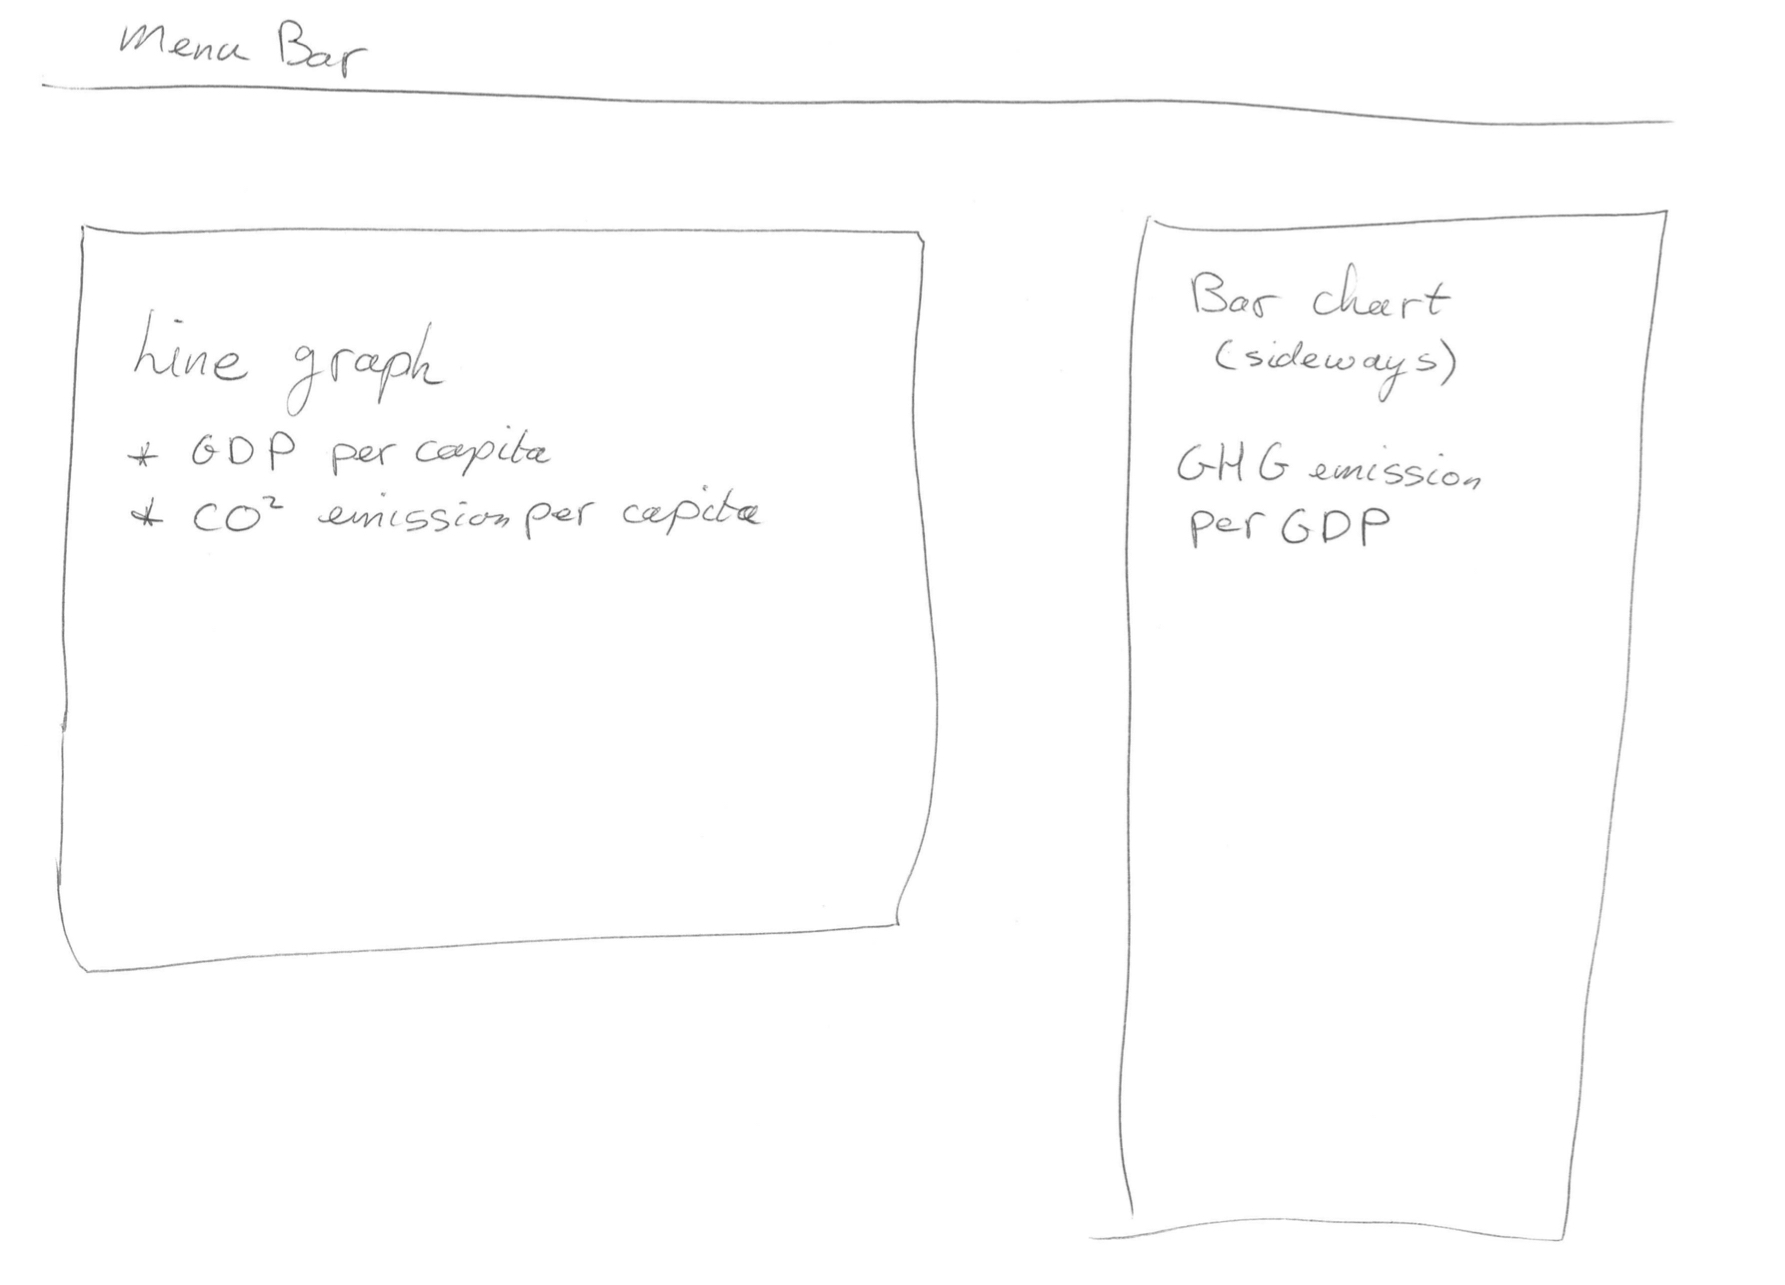 Menu Bar
Line graph
* GDP per capita
* CO² emission per capita
Bar chart
(sideways)
GHG emission
per GDP